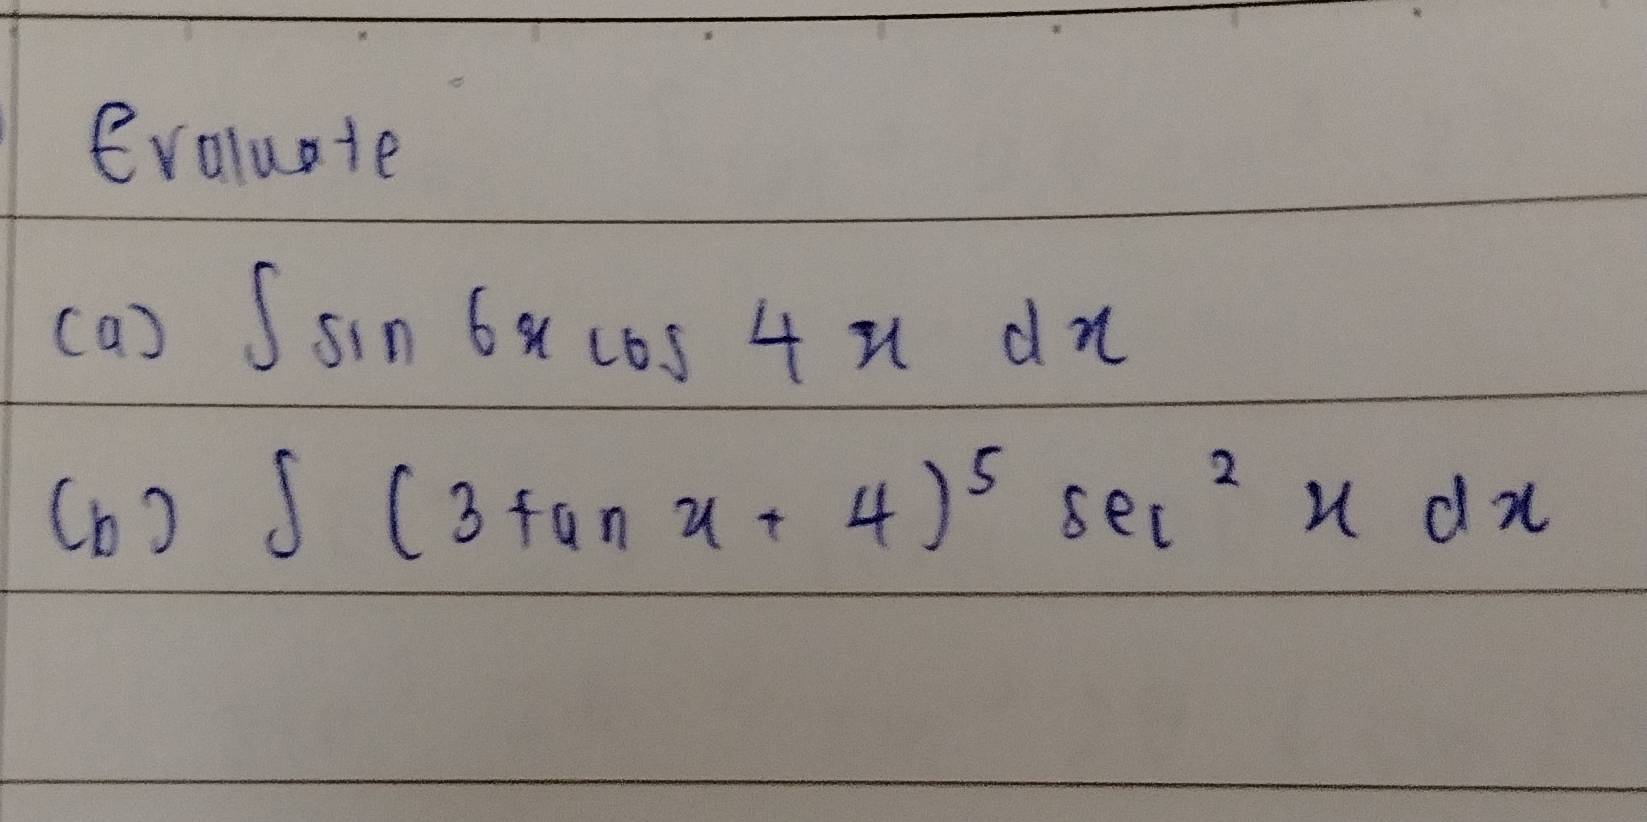 Evaluate
(a) ∫ sin 6x cos 4x dx
(b) ∫ (3 tan x + 4)⁵ sec² x dx